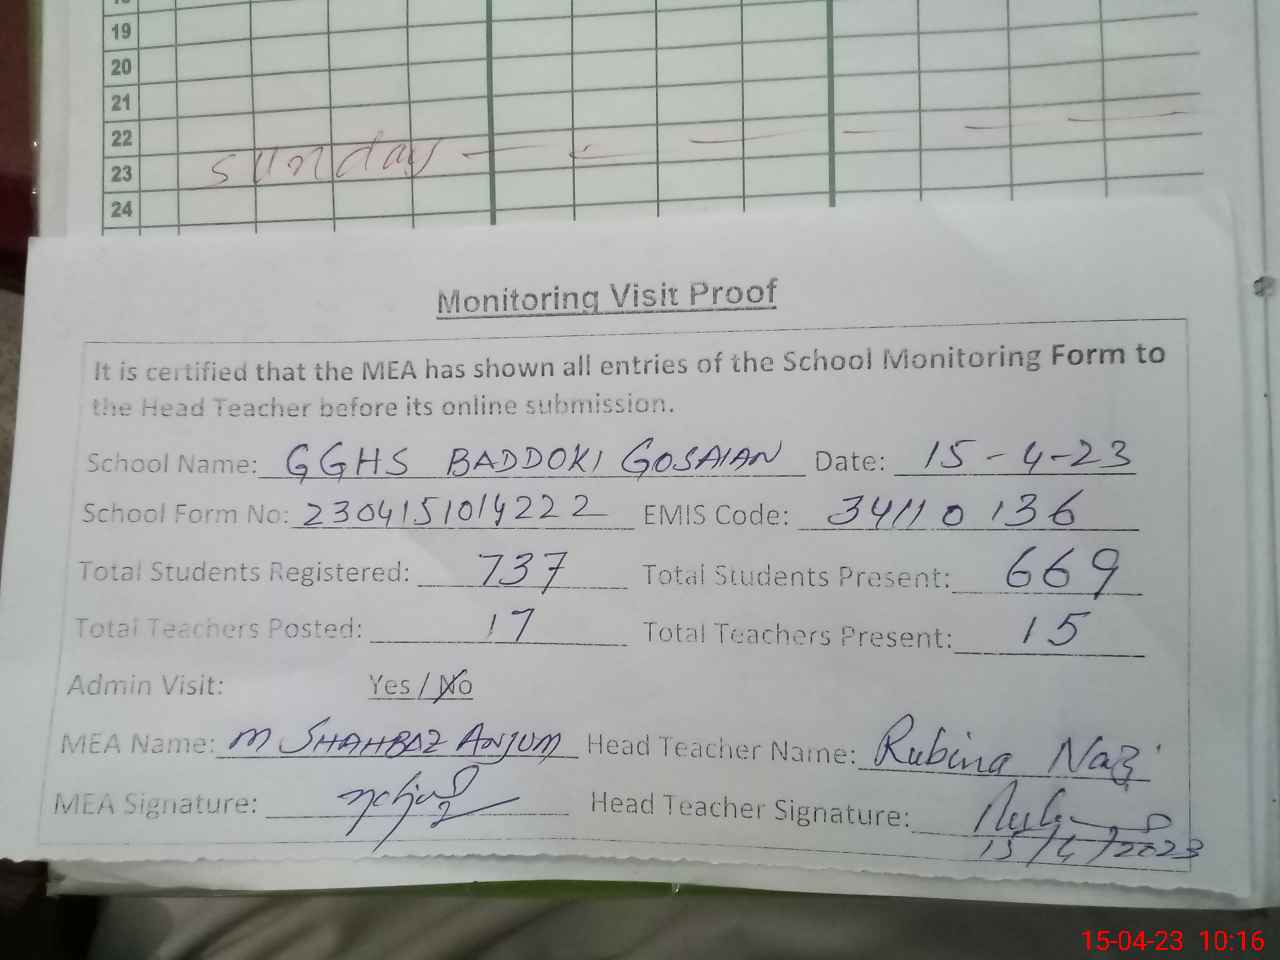 19
20
21
22
23 Sunday
24
Monitoring Visit Proof
It is certified that the MEA has shown all entries of the School Monitoring Form to
the Head Teacher before its online submission.
School Name: GGHS BADDOKI GOSAIAN Date: 15-4-23
School Form No: 2304151014222 EMIS Code: 34110136
Total Students Registered: 737 Total Students Present: 669
Total Teachers Posted: 17 Total Teachers Present: 15
Admin Visit: Yes / No
MEA Name: M SHAHBAZ ANJUM Head Teacher Name: Rubina Naz
MEA Signature: Head Teacher Signature:
15/4/2023
15-04-23 10:16